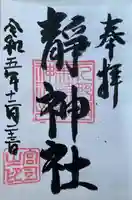 奉拝
靜神社
令和五年十二月二十三日